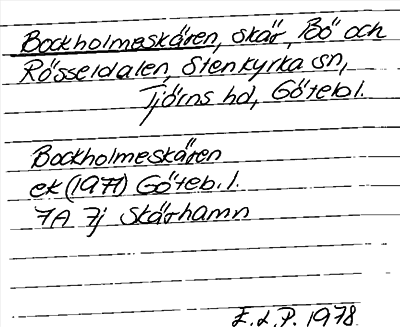 Bockholmeskären, skär, Bö och
Rösseldalen, Stenkyrka sn,
Tjörns hd, Götebl.
Bockholmeskären
ek (1977) Göteb. l.
7A 7j Skärhamn
E.L.P. 1978